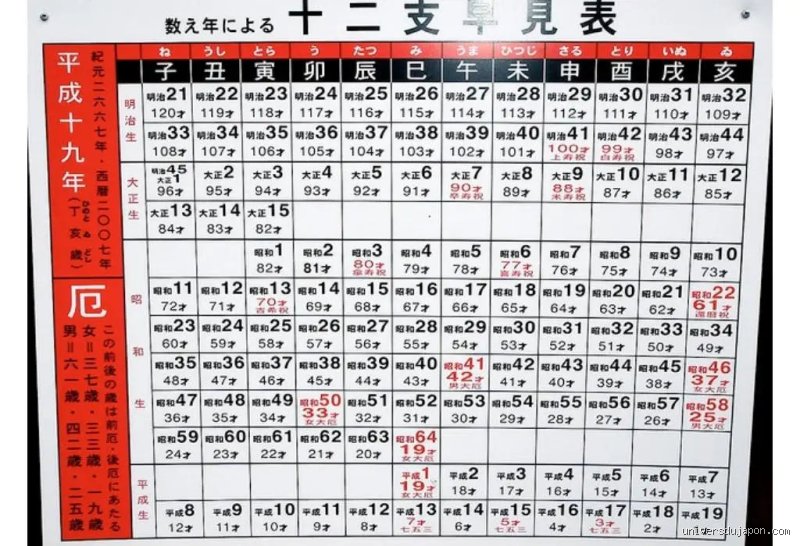 数え年による 十二支早見表
平成十九年
(丁亥歳)
ひのと ゐ どし
紀元二六六七年・西暦二〇〇七年
厄
この前後の歳は前厄・後厄にあたる
女=三七歳・三三歳・一九歳
男=六一歳・四二歳・二五歳
ね うし とら う たつ み うま ひつじ さる とり いぬ ゐ
子 丑 寅 卯 辰 巳 午 未 申 酉 戌 亥
明治生
明治21 明治22 明治23 明治24 明治25 明治26 明治27 明治28 明治29 明治30 明治31 明治32
120才 119才 118才 117才 116才 115才 114才 113才 112才 111才 110才 109才
明治33 明治34 明治35 明治36 明治37 明治38 明治39 明治40 明治41 明治42 明治43 明治44
108才 107才 106才 105才 104才 103才 102才 101才 100才 99才 98才 97才
上寿祝 白寿祝
大正生
明治45 大正1 大正2 大正3 大正4 大正5 大正6 大正7 大正8 大正9 大正10 大正11 大正12
96才 95才 94才 93才 92才 91才 90才 89才 88才 87才 86才 85才
卒寿祝 米寿祝
大正13 大正14 大正15
84才 83才 82才
昭和生
昭和1 昭和2 昭和3 昭和4 昭和5 昭和6 昭和7 昭和8 昭和9 昭和10
82才 81才 80才 79才 78才 77才 76才 75才 74才 73才
傘寿祝 喜寿祝
昭和11 昭和12 昭和13 昭和14 昭和15 昭和16 昭和17 昭和18 昭和19 昭和20 昭和21 昭和22
72才 71才 70才 69才 68才 67才 66才 65才 64才 63才 62才 61才
古希祝 還暦祝
昭和23 昭和24 昭和25 昭和26 昭和27 昭和28 昭和29 昭和30 昭和31 昭和32 昭和33 昭和34
60才 59才 58才 57才 56才 55才 54才 53才 52才 51才 50才 49才
昭和35 昭和36 昭和37 昭和38 昭和39 昭和40 昭和41 昭和42 昭和43 昭和44 昭和45 昭和46
48才 47才 46才 45才 44才 43才 42才 41才 40才 39才 38才 37才
男大厄 女大厄
昭和47 昭和48 昭和49 昭和50 昭和51 昭和52 昭和53 昭和54 昭和55 昭和56 昭和57 昭和58
36才 35才 34才 33才 32才 31才 30才 29才 28才 27才 26才 25才
女大厄 男大厄
昭和59 昭和60 昭和61 昭和62 昭和63 昭和64
24才 23才 22才 21才 20才 19才
女大厄
平成生
平成1 平成2 平成3 平成4 平成5 平成6 平成7
19才 18才 17才 16才 15才 14才 13才
女大厄
平成8 平成9 平成10 平成11 平成12 平成13 平成14 平成15 平成16 平成17 平成18 平成19
12才 11才 10才 9才 8才 7才 6才 5才 4才 3才 2才
七五三 七五三 七五三
universdujapon.com